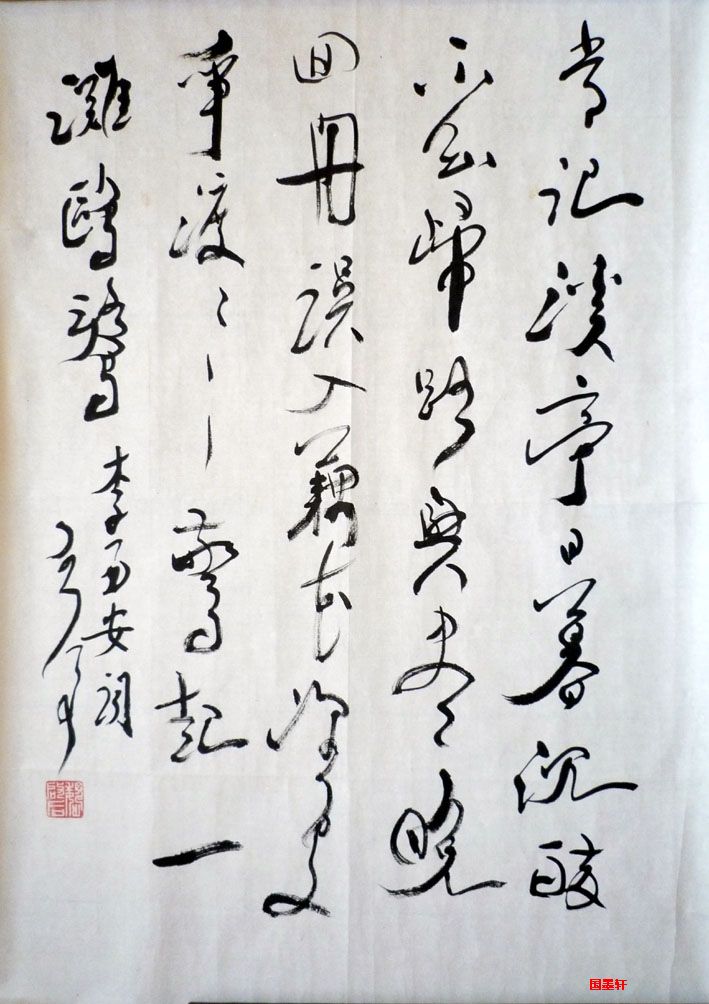 常記溪亭日暮沉醉
不知歸路興尽晚
囬舟誤入藕花深處
爭渡〻〻驚起一
灘鷗鷺
李易安詞
国墨轩